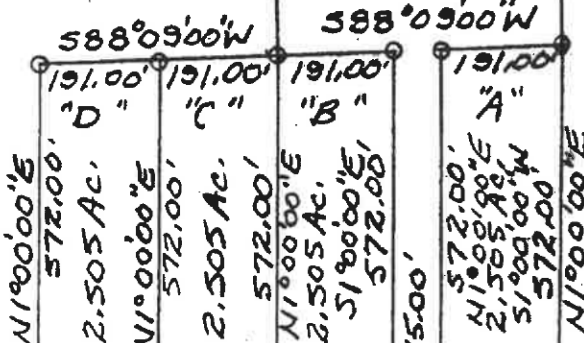 S88°09'00"W
S88°09'00"W
191.00'
191.00'
191.00'
191.00'
"D"
"C"
"B"
"A"
N1°00'00"E
572.00'
2.505 Ac.
N1°00'00"E
572.00'
2.505 Ac.
572.00'
N1°00'00"E
2.505 Ac.
S1°00'00"E
572.00'
5.00'
572.00'
N1°00'00"E
2.505 Ac.
S1°00'00"W
572.00'
N1°00'00"E